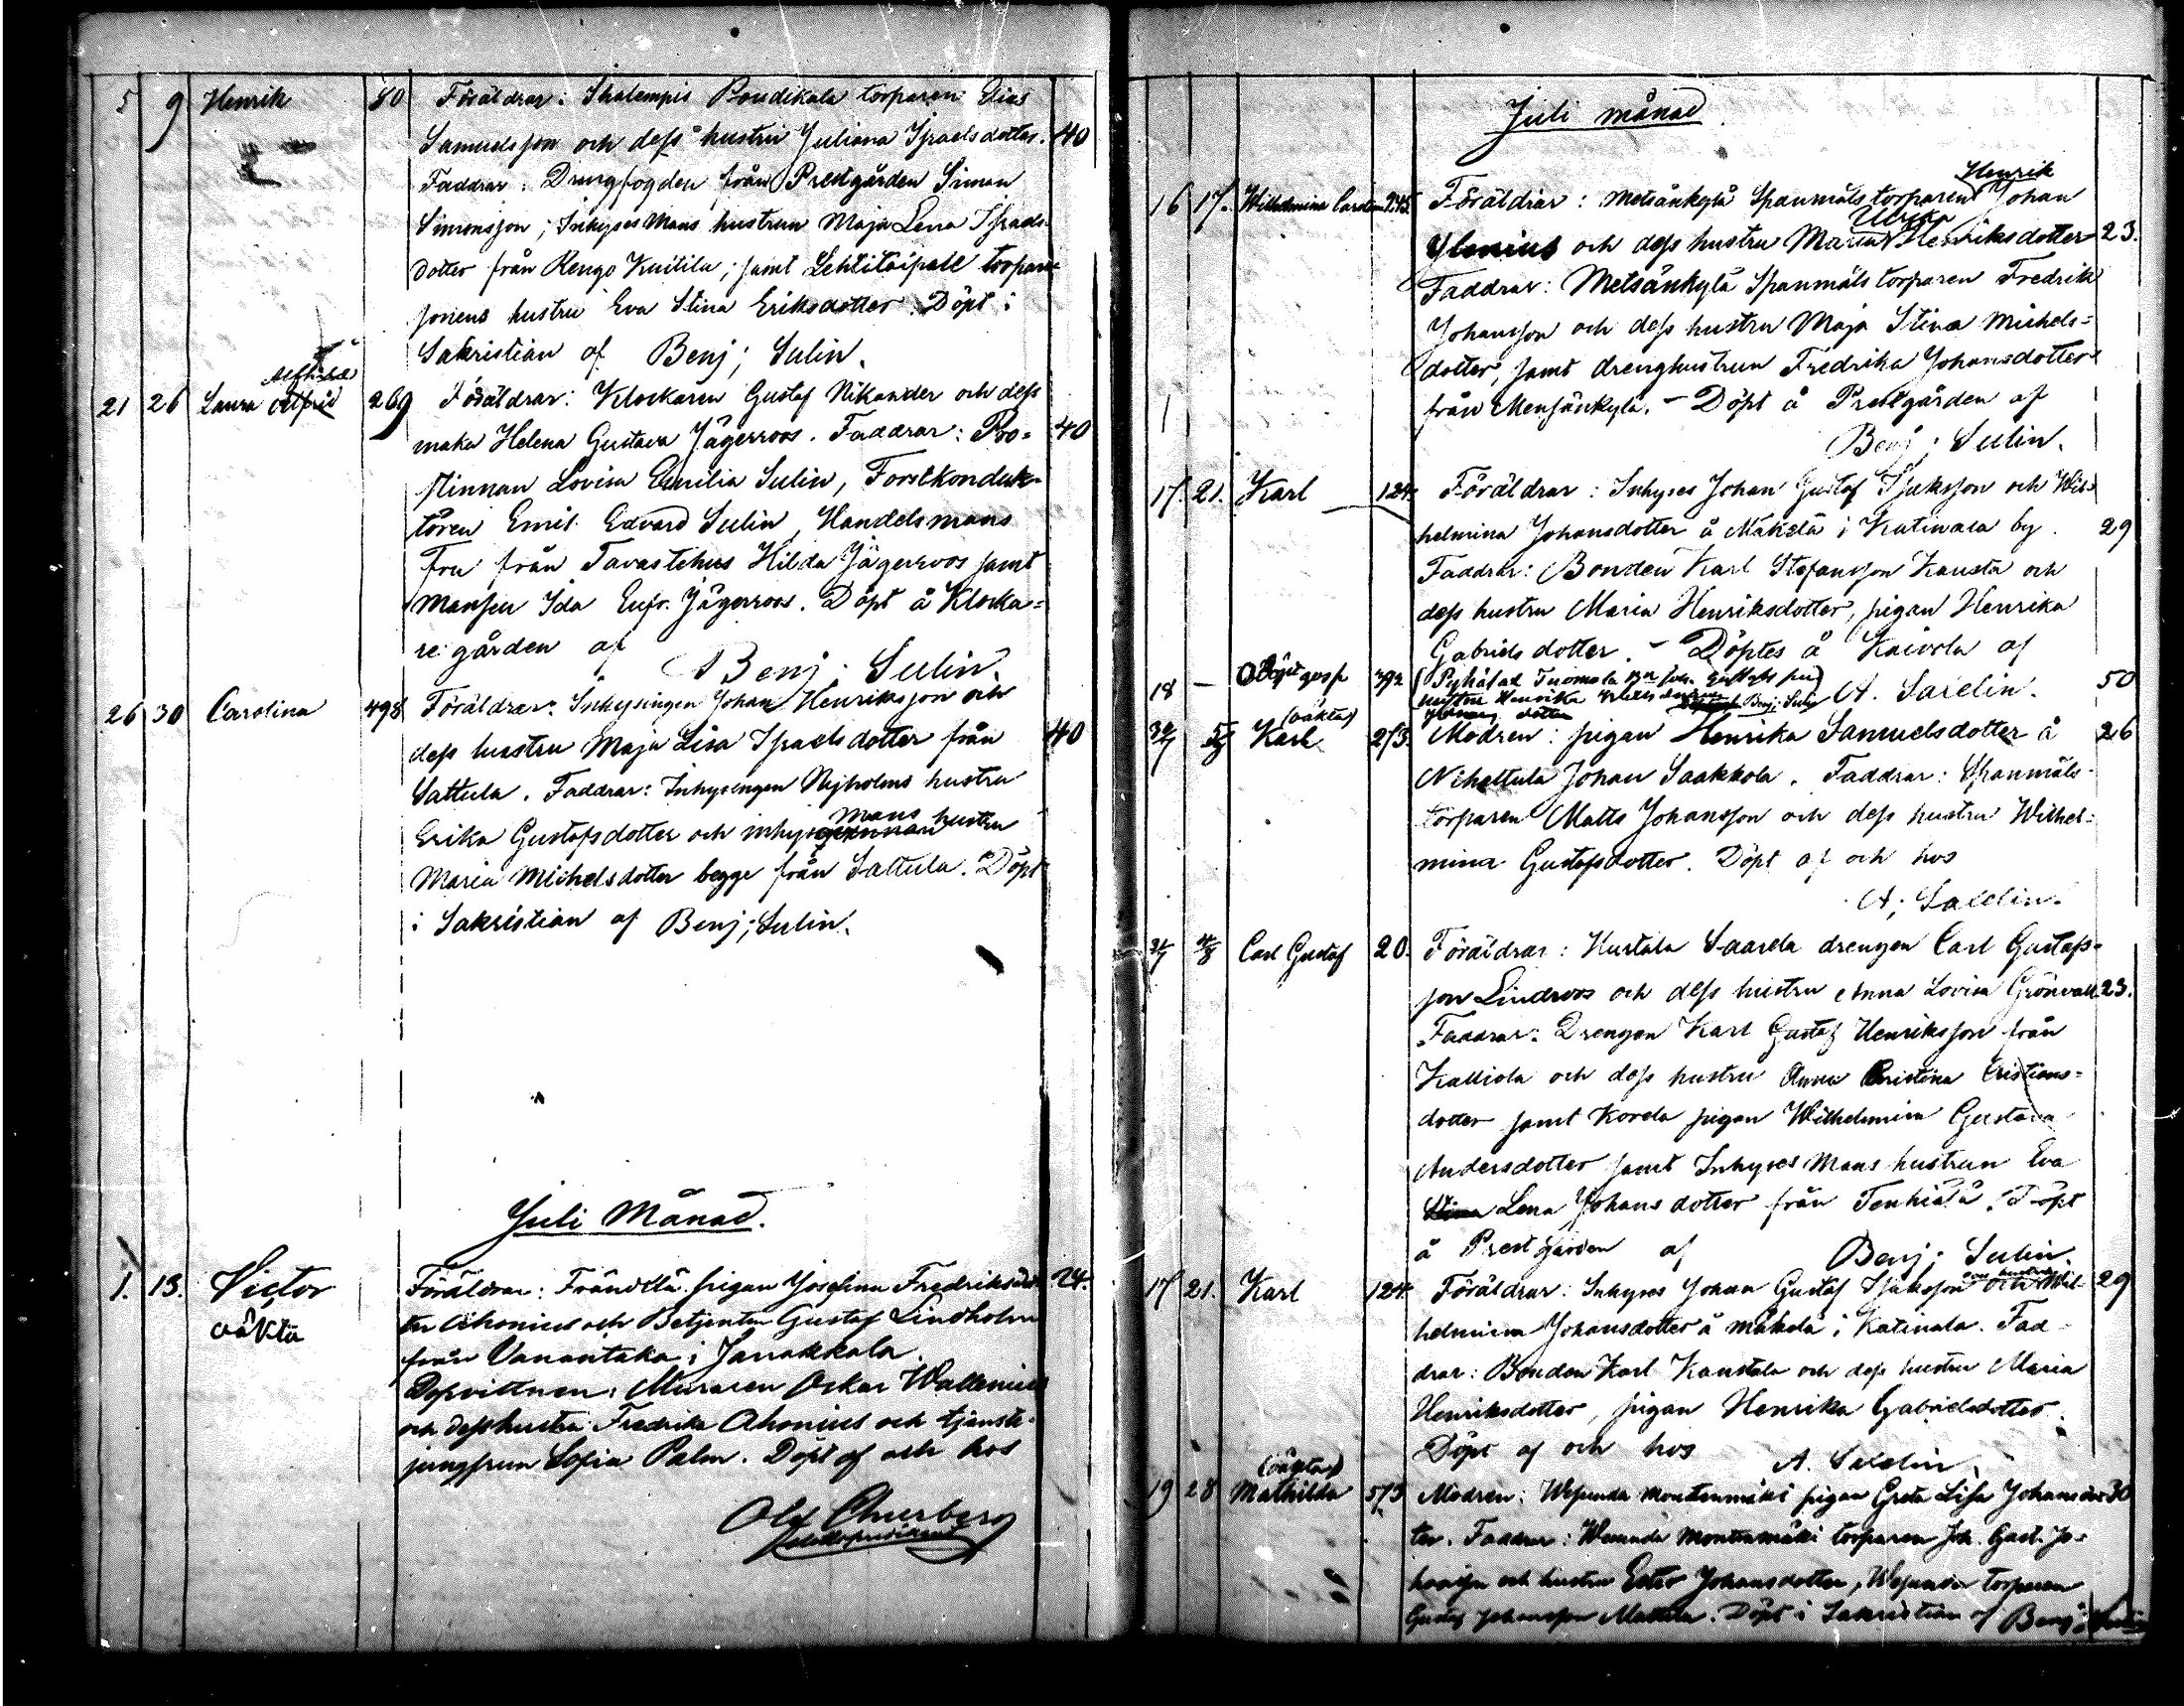 5 9 Henrik 80 Föräldrar: Skalempis Pondikala torparen Elias
Samuelsson och dess hustru Juliana Israelsdotter. 40
Faddrar: Drengfogden från Prestgården Simon
Simonsson; Inhyses Mans hustrun Maja Lena Israels-
dotter från Rengo Kuitila; samt Lehtitaipale torpare-
sonens hustru Eva Stina Eriksdotter. Döpt i
Sakristian af Benj; Sulin.
21 26 Laura 269 Föräldrar: Klockaren Gustaf Nikander och dess
maka Helena Gustava Jägerroos. Faddrar: Pro= 40
stinnan Lovisa Emilia Sulin, Forstkonduk-
tören Emil Edvard Sulin, Handelsmans
Fru från Tavastehus Hilda Jägerroos samt
Mamsen Ida Eufr. Jägerroos. Döpt å Klocka=
re gården af
Benj. Sulin.
26 30 Carolina 498 Föräldrar: Inhysingen Johan Henriksson och
dess hustru Maja Lisa Israelsdotter från 40
Sattula. Faddrar: Inhysingen Nyholms hustru
mans hustru
Erika Gustafsdotter och inhyses
Maria Michelsdotter begge från Sattula. Döpt
i Sakristian af Benj; Sulin.
Juli Månad.
1. 13. Victor Föräldrar: pigan Josefina Fredriksdot- 24.
oäkta ter Ahonius och Betjenten Gustaf Lindholm
från Vanantaka i Janakkala.
Dopvittnen: Muraren Oskar Wallenius
och dess hustru Fredrika Ahonius och tjenste-
jungfrun Sofia Palm. Döpt af och hos
Churberg
Juli månad
Henrik
16 17. Wilhelmina Carolina 245. Föräldrar: Metsänkylä Spanmåls torparen Johan
Ulrika
Ylenius och dess hustru Maria Henriksdotter 23.
Faddrar: Metsänkylä Spanmåls torparen Fredrik
Johansson och dess hustru Maja Stina Michels=
dotter, samt drenghustrun Fredrika Johansdotter
från Mensänkylä. - Döpt å Prestgården af
Benj; Sulin.
17. 21. Karl 124. Föräldrar: Inhyses Johan Gustaf Isaksson och Wil=
helmina Johansdotter å Mäkelä i Katinala by. 29
Faddrar: Bonden Karl Stefansson Kausta och
dess hustru Maria Henriksdotter, pigan Henrika
Gabriels dotter. - Döptes å Kaivola af
18 - 392 Tuomola A. Saxelin. 50
(oäkta)
Karl 273. Modren: pigan Henrika Samuelsdotter å 26
Nihattula Johan Saakkola. Faddrar: Spanmåls-
torparen Matts Johansson och dess hustru Wilhel=
mina Gustafsdotter. Döpt af och hos
A; Saxelin.
31/7 4/8 Carl Gustaf 20. Föräldrar: Hurtala Saarela drengen Carl Gustafs-
son Lindroos och dess hustru Anna Lovisa Grönvall 23.
Faddrar: Drengen Karl Gustaf Henriksson från
Kalliola och dess hustru Anna Cristina Cristians=
dotter samt Korela pigan Wilhelmina Gustava
Andersdotter samt Inhyses Mans hustrun Eva
Stina Lena Johans dotter från Tenhiälä. Döpt
å Prest gården af Benj; Sulin.
17 21. Karl 124. Föräldrar: Inhyses Johan Gustaf Isaksson och Wil- 29
helmina Johansdotter å Mäkelä i Katinala. Fad-
drar: Bonden Karl Kaustala och dess hustru Maria
Henriksdotter, pigan Henrika Gabrielsdotter.
Döpt af och hos A. Saxelin.
(oäkta)
19 28 Mathilda 573 Modren: Wesunda Montenmäki pigan Greta Lisa Johansdot- 30
ter. Faddrar: Montenmäki torparen Joh. Gust. Jo-
hansson och hustru Ester Johansdotter, Wesunda torparen
Gustaf Johansson Mattila. Döpt i Sakristian af Benj;